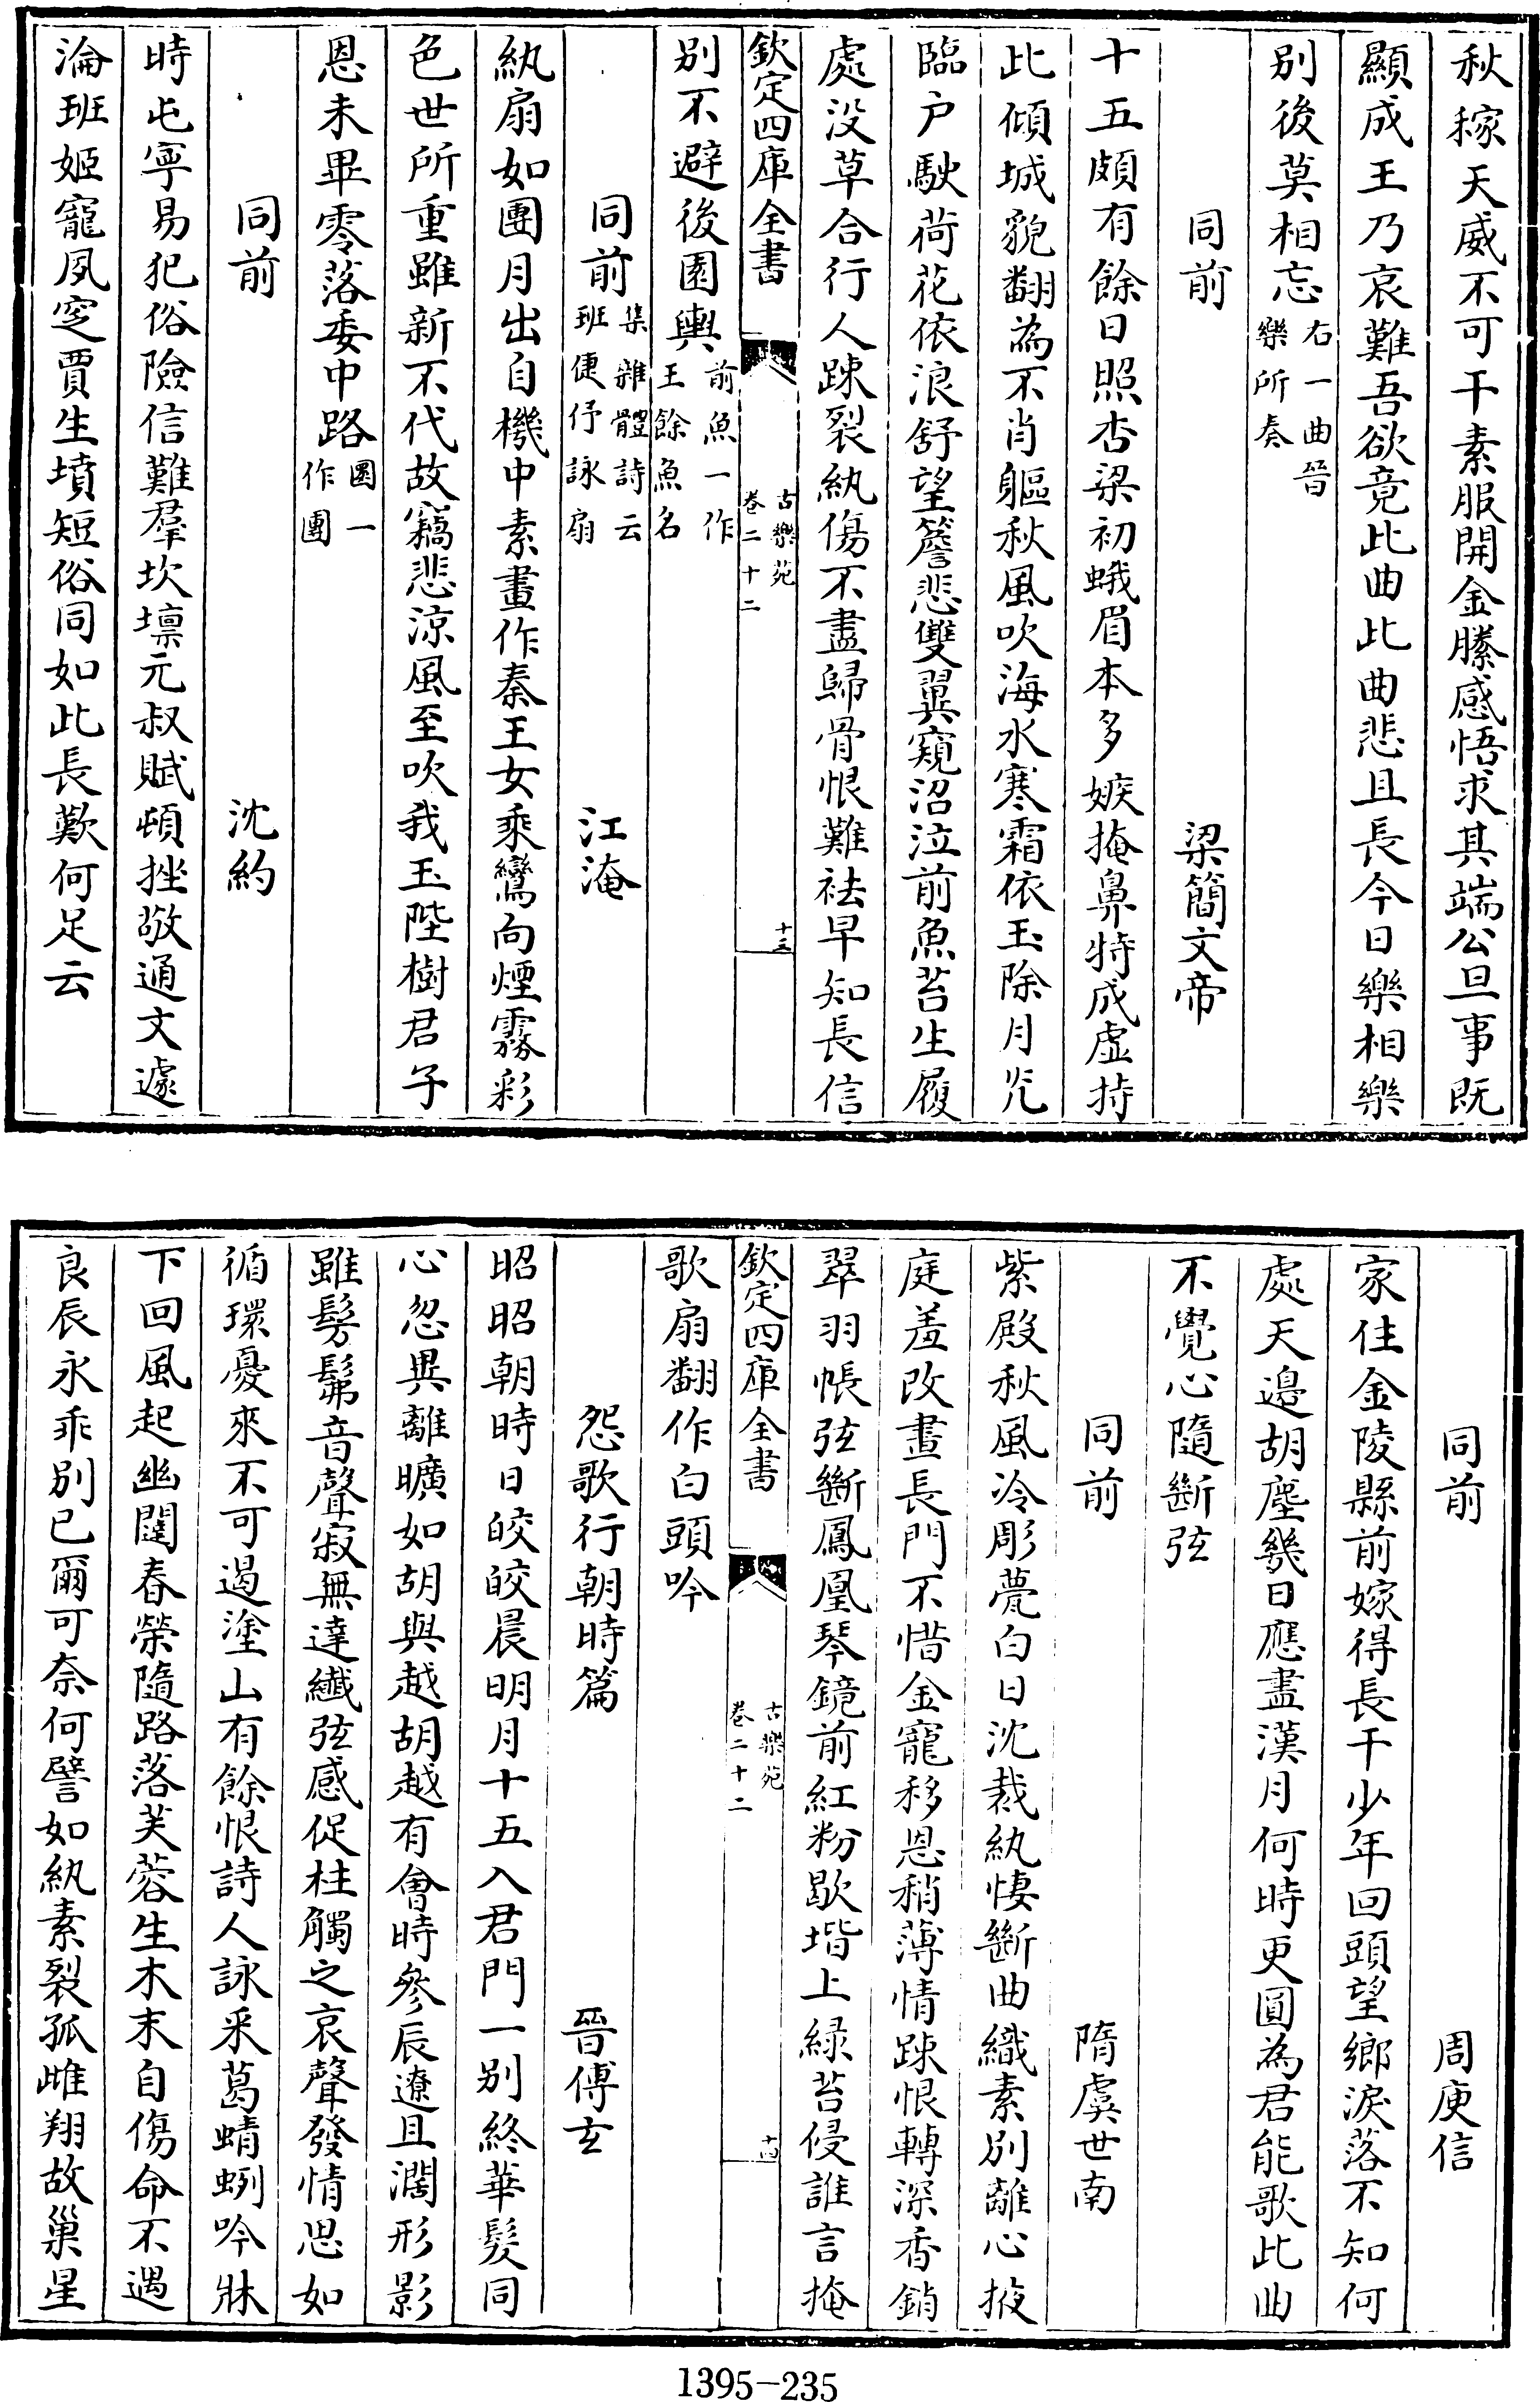 秋稼天威不可干素服開金縢感悟求其端公旦事既
顯成王乃哀難吾欲竟此曲此曲悲且長今日樂相樂
别後莫相忘右一曲晉樂所奏
同前 梁簡文帝
十五頗有餘日照杏梁初蛾眉本多嫉掩鼻特成虚持
此傾城貌翻為不肖軀秋風吹海水寒霜依玉除月光
臨户駛荷花依浪舒望簷悲雙翼窺沼泣前魚苔生履
處没草合行人踈裂紈傷不盡歸骨恨難袪早知長信
欽定四庫全書 古樂苑卷二十二 十三
别不避後園輿前魚一作王餘魚名
同前集雜體詩云班倢伃詠扇 江淹
紈扇如團月出自機中素畫作秦王女乘鸞向煙霧彩
色世所重雖新不代故竊悲涼風至吹我玉階樹君子
恩未畢零落委中路團一作團
同前 沈約
時屯寧易犯俗險信難羣坎壈元叔賦頓挫敬通文遽
淪班姬寵夙窆賈生墳短俗同如此長歎何足云
同前 周庾信
家住金陵縣前嫁得長干少年回頭望鄉淚落不知何
處天邉胡塵幾日應盡漢月何時更圓為君能歌此曲
不覺心隨斷弦
同前 隋虞世南
紫殿秋風冷彫甍白日沈裁紈悽斷曲織素别離心掖
庭羞改畫長門不惜金寵移恩稍薄情踈恨轉深香銷
翠羽帳弦斷鳳凰琴鏡前紅粉歇堦上緑苔侵誰言掩
欽定四庫全書 古樂苑卷二十二 十四
歌扇翻作白頭吟
怨歌行朝時篇 晉傅玄
昭昭朝時日皎皎晨明月十五入君門一别終華髮同
心忽異離曠如胡與越胡越有會時參辰遼且濶形影
雖髣髴音聲寂無達纖弦感促柱觸之哀聲發情思如
循環憂來不可遏塗山有餘恨詩人詠采葛蜻蛚吟牀
下回風起幽闥春榮隨路落芙蓉生木末自傷命不遇
良辰永乖别已爾可奈何譬如紈素裂孤雌翔故巢星
1395-235